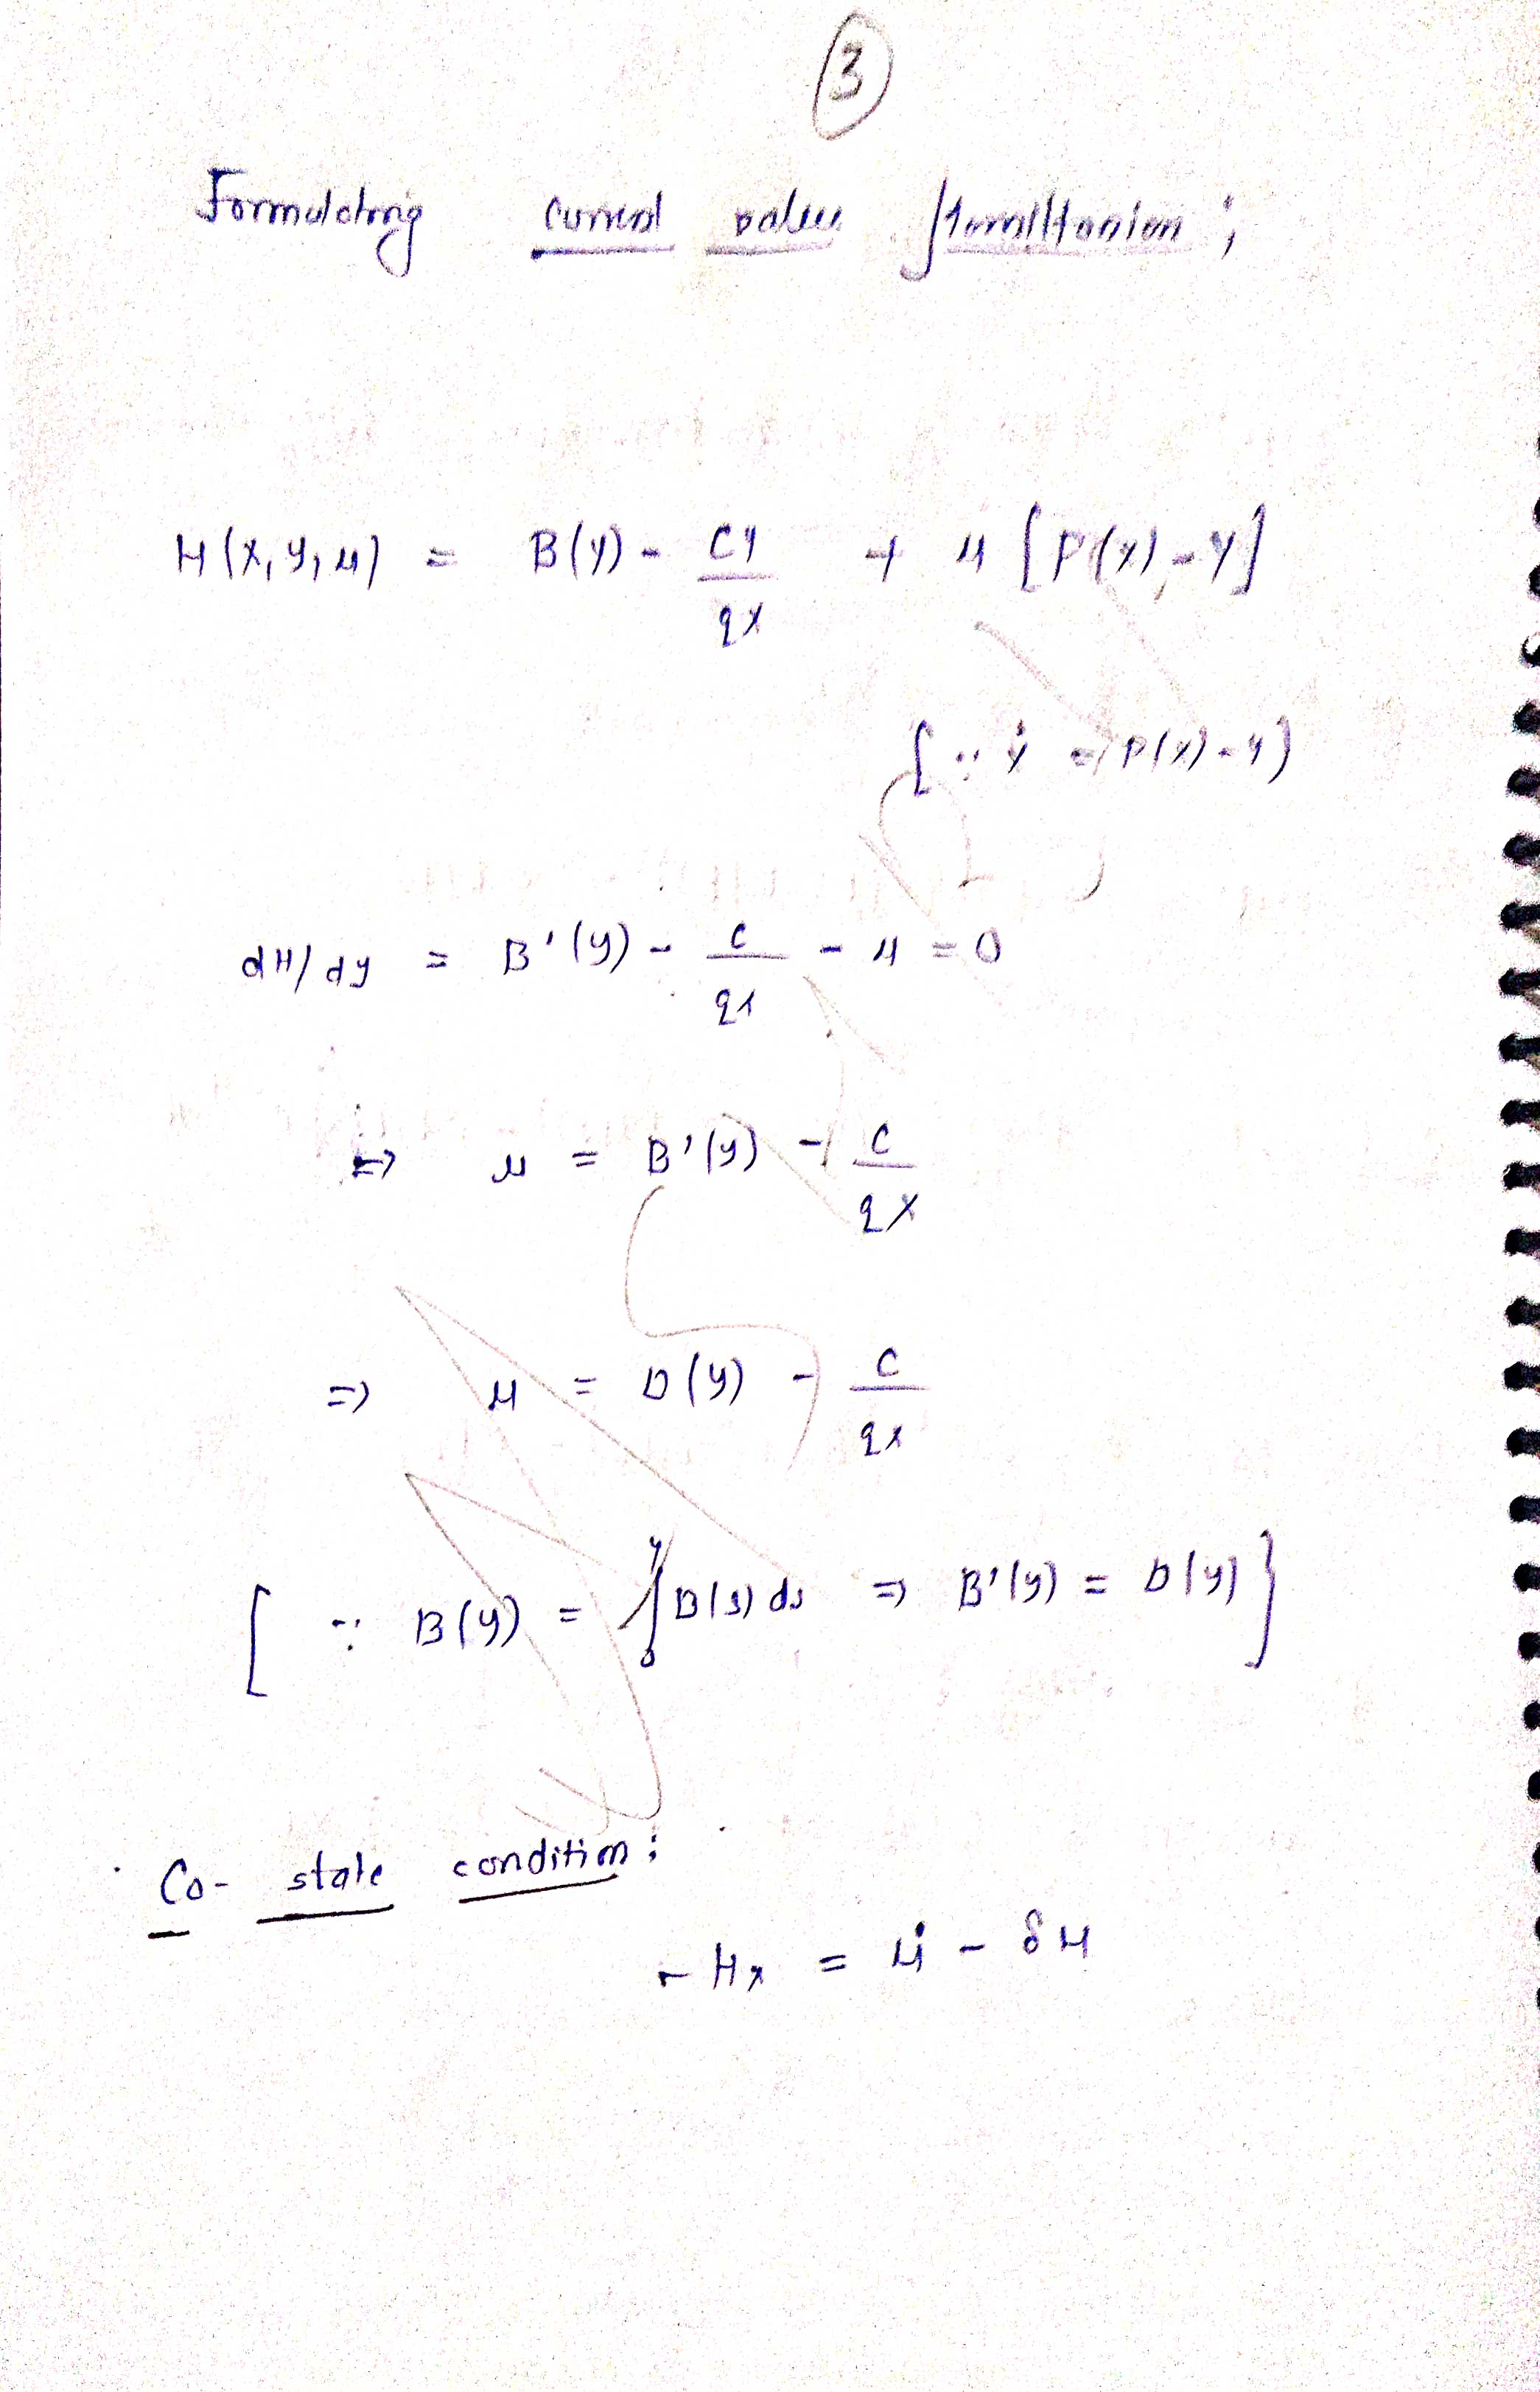 3
Formulating current value Hamiltonian ;
H(x, y, μ) = B(y) - cy/qx + μ [F(x) - y]
[∵ ẋ = F(x) - y]
dH/dy = B'(y) - c/qx - μ = 0
⇒ μ = B'(y) - c/qx
⇒ μ = D(y) - c/qx
[ ∵ B(y) = ∫₀ʸ B(s) ds ⇒ B'(y) = D(y) }
Co-state condition :
- Hx = μ̇ - δμ